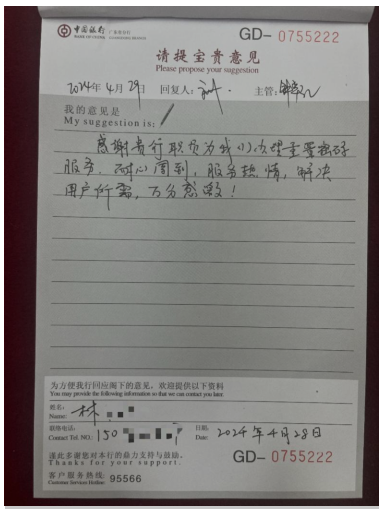 中国银行 广东省分行
BANK OF CHINA GUANGDONG BRANCH
GD- 0755222
请提宝贵意见
Please propose your suggestion
2024年 4月 29日 回复人: 主管:
我的意见是
My suggestion is:
感谢贵行职员为我们办理重置密码
服务,耐心周到,服务热情,解决
用户所需,万分感激!
为方便我行回应阁下的意见,欢迎提供以下资料
You may provide the following information so that we can contact you later.
姓名:
Name: 林
联络电话:
Contact Tel. NO.: 150
日期:
Date: 2024年4月28日
谨此多谢您对本行的鼎力支持与鼓励。
Thanks for your support.
GD- 0755222
客户服务热线:
Customer Services Hotline: 95566